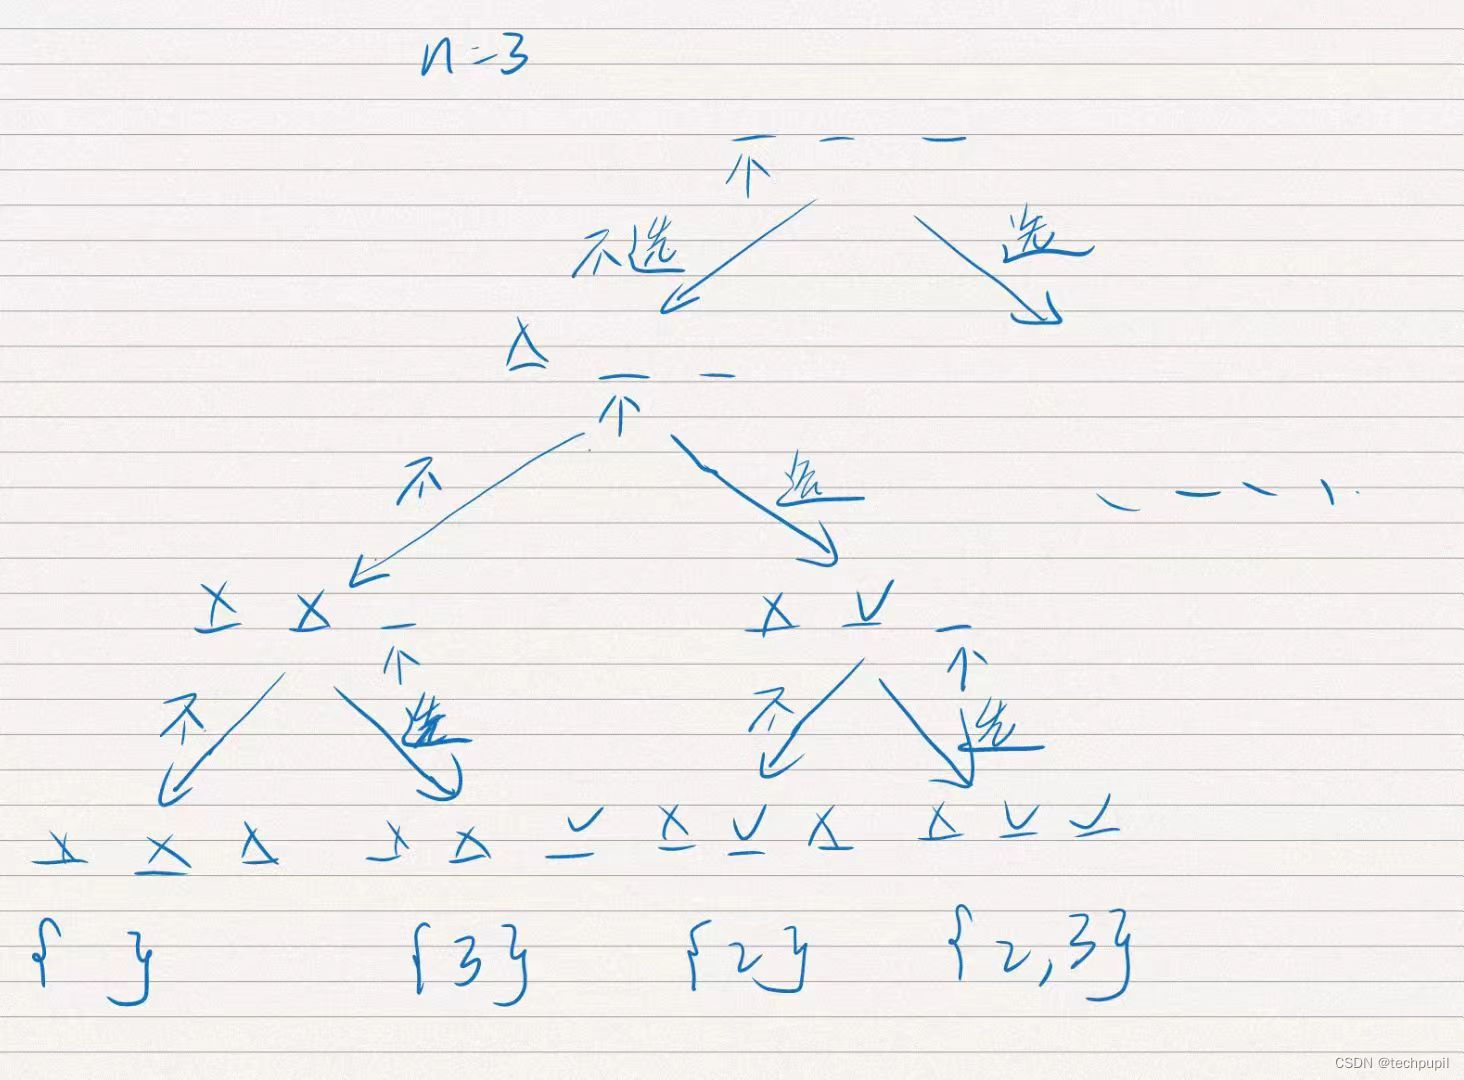 n=3
不选 选
不 选
X X X V
不 选 不 选
X X X X X V X V X X V V
{ } {3} {2} {2,3}
CSDN @techpupil